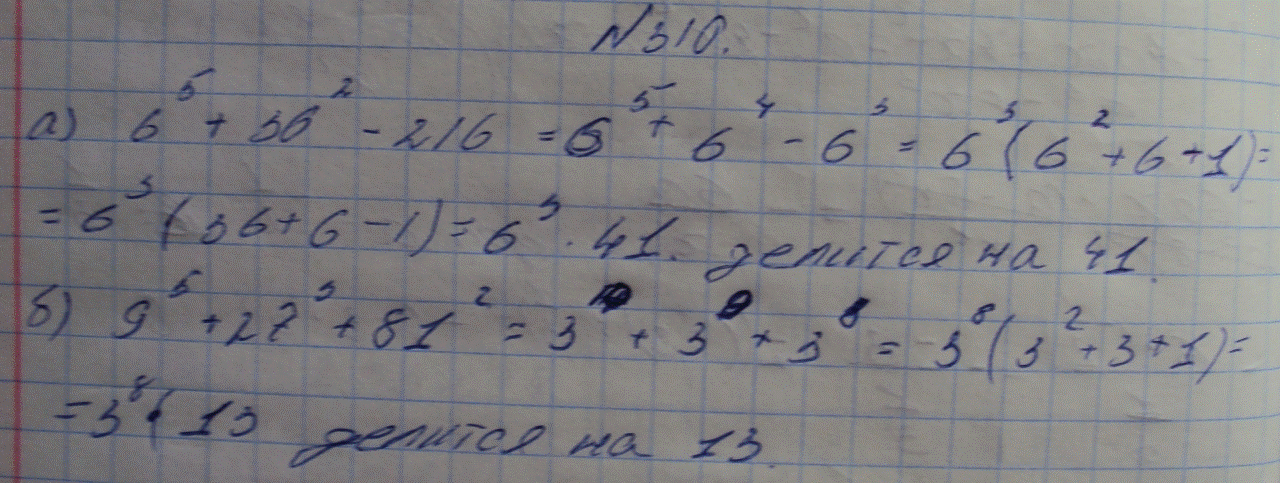 №310.
а) 6⁵ + 36² - 216 = 6⁵ + 6⁴ - 6³ = 6³(6² + 6 + 1) =
= 6³(36 + 6 - 1) = 6³ · 41. делится на 41.
б) 9⁵ + 27³ + 81² = 3¹⁰ + 3⁹ + 3⁸ = 3⁸(3² + 3 + 1) =
= 3⁸ · 13 делится на 13.